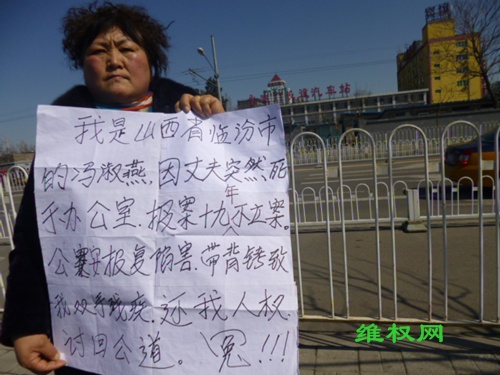 我是山西省临汾市
的冯淑燕,因丈夫突然死
于办公室.报案十九年不立案。
公安报复陷害.带背铐致
我双手残疾.还我人权.
讨回公道。冤!!!
维权网